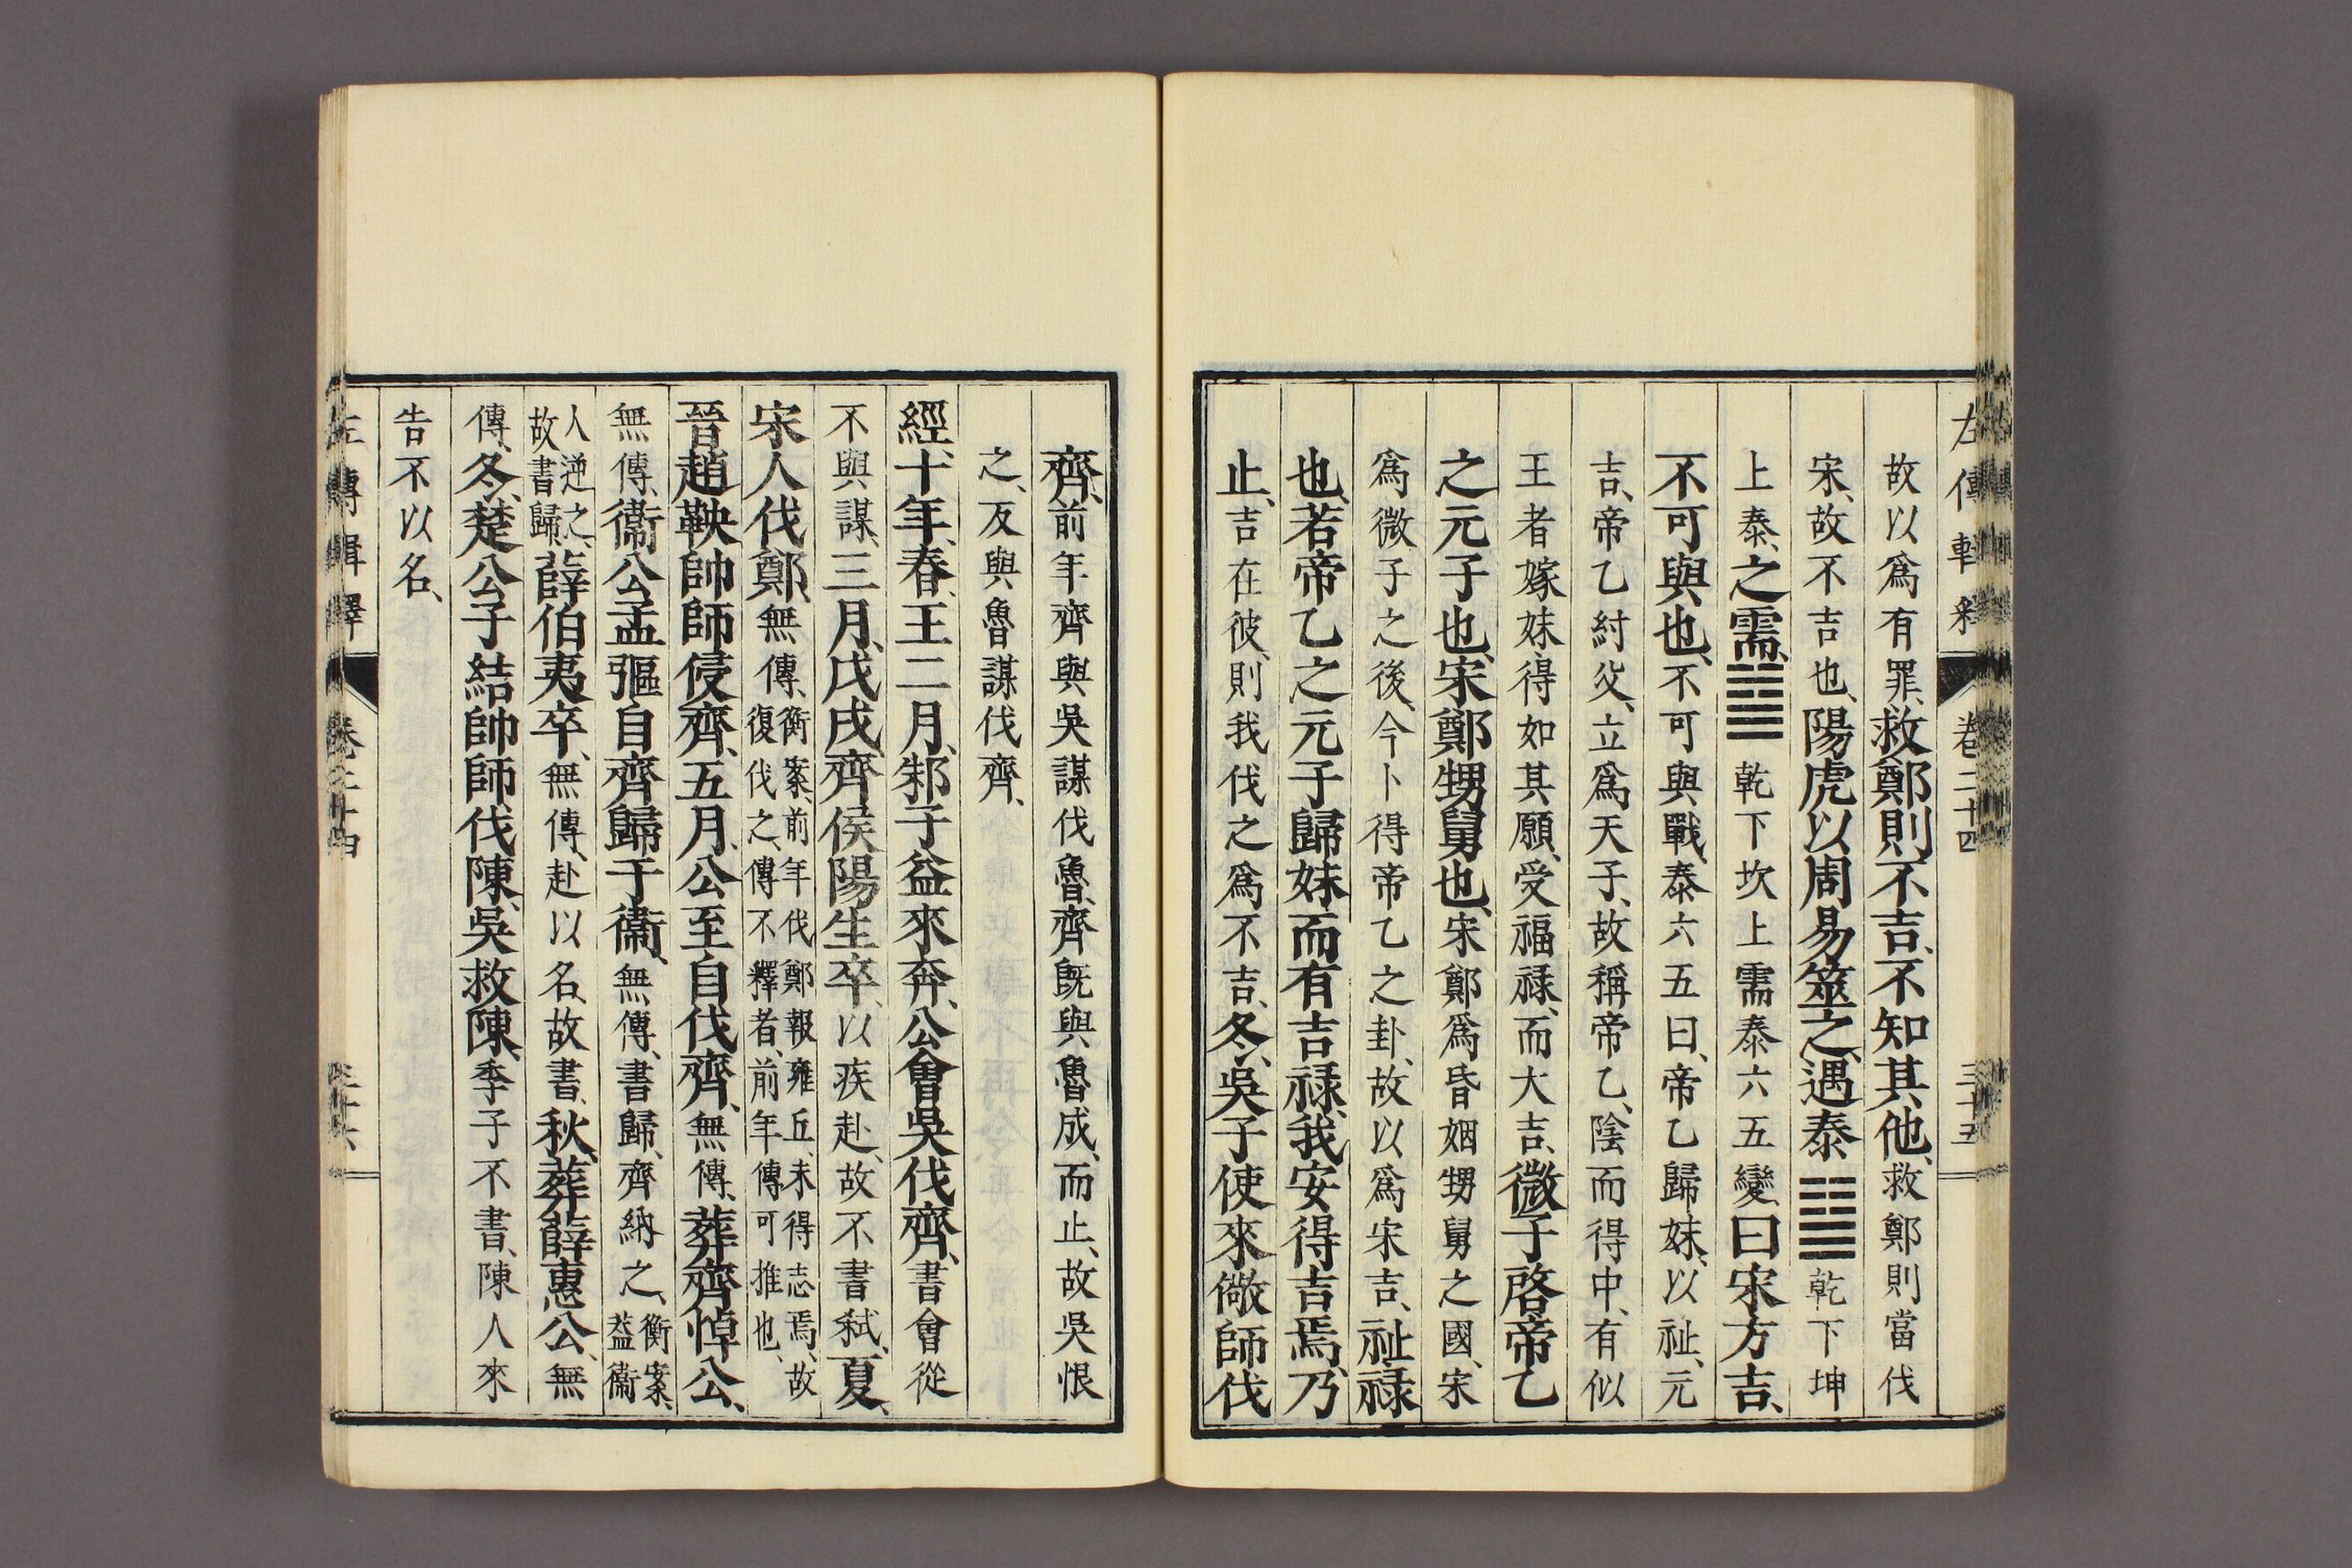 故以爲有罪、救鄭則不吉、不知其他、救鄭則當伐
宋、故不吉也、陽虎以周易筮之、遇泰䷊乾下坤
上泰、之需、䷄乾下坎上需泰六五變、曰宋方吉、
不可與也、不可與戰、泰六五曰、帝乙歸妹、以祉、元
吉、帝乙紂父、立爲天子、故稱帝乙、陰而得中、有似
王者嫁妹、得如其願、受福禄、而大吉、微子啓帝乙
之元子也、宋鄭甥舅也、宋鄭爲昏姻甥舅之國、宋
爲微子之後、今卜得帝乙之卦、故以爲宋吉、祉禄
也、若帝乙之元子歸妹而有吉禄、我安得吉焉、乃
止、吉在彼、則我伐之爲不吉、冬、吳子使來儆師伐
左傳輯釋 卷二十四 三十五
齊、前年齊與吳謀伐魯、齊既與魯成、而止、故吳恨
之、反與魯謀伐齊、
經、十年、春、王二月、邾子益來奔、公會吳伐齊、書會從
不與謀、三月、戊戌、齊侯陽生卒、以疾赴、故不書弑、夏、
宋人伐鄭、無傳、衡案、前年伐鄭報雍丘、未得志焉、故復伐之、傳不釋者、前年傳可推也、
晉趙鞅帥師侵齊、五月、公至自伐齊、無傳、葬齊悼公、
無傳、衞公孟彄自齊歸于衞、無傳、書歸、齊納之、衡案、葢衞
人逆之、故書歸、薛伯夷卒、無傳、赴以名、故書、秋、葬薛惠公、無
傳、冬、楚公子結帥師伐陳、吳救陳、季子不書、陳人來
告不以名、
左傳輯釋 卷二十四 三十六